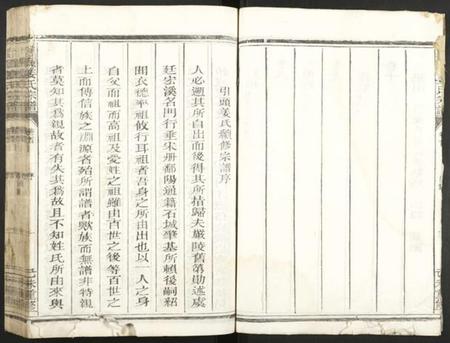 引頭姜氏續修宗譜序
人必遡其所自出而後得其所指歸夫嚴陵舊第勛述處
廷宏溪名門行垂宋册鄱陽通籍石城肇基所賴後嗣紹
聞衣德平祖攸行耳祖者吾身之所由出也以一人之身
自父而祖而高祖及爰姓之祖雖由百世之後等百世之
上而傳信族之淵源者殆所謂譜者歟族而無譜非特親
者莫知其爲親故者有失其爲故且不知姓氏所由來與
姜氏宗譜
己未重修